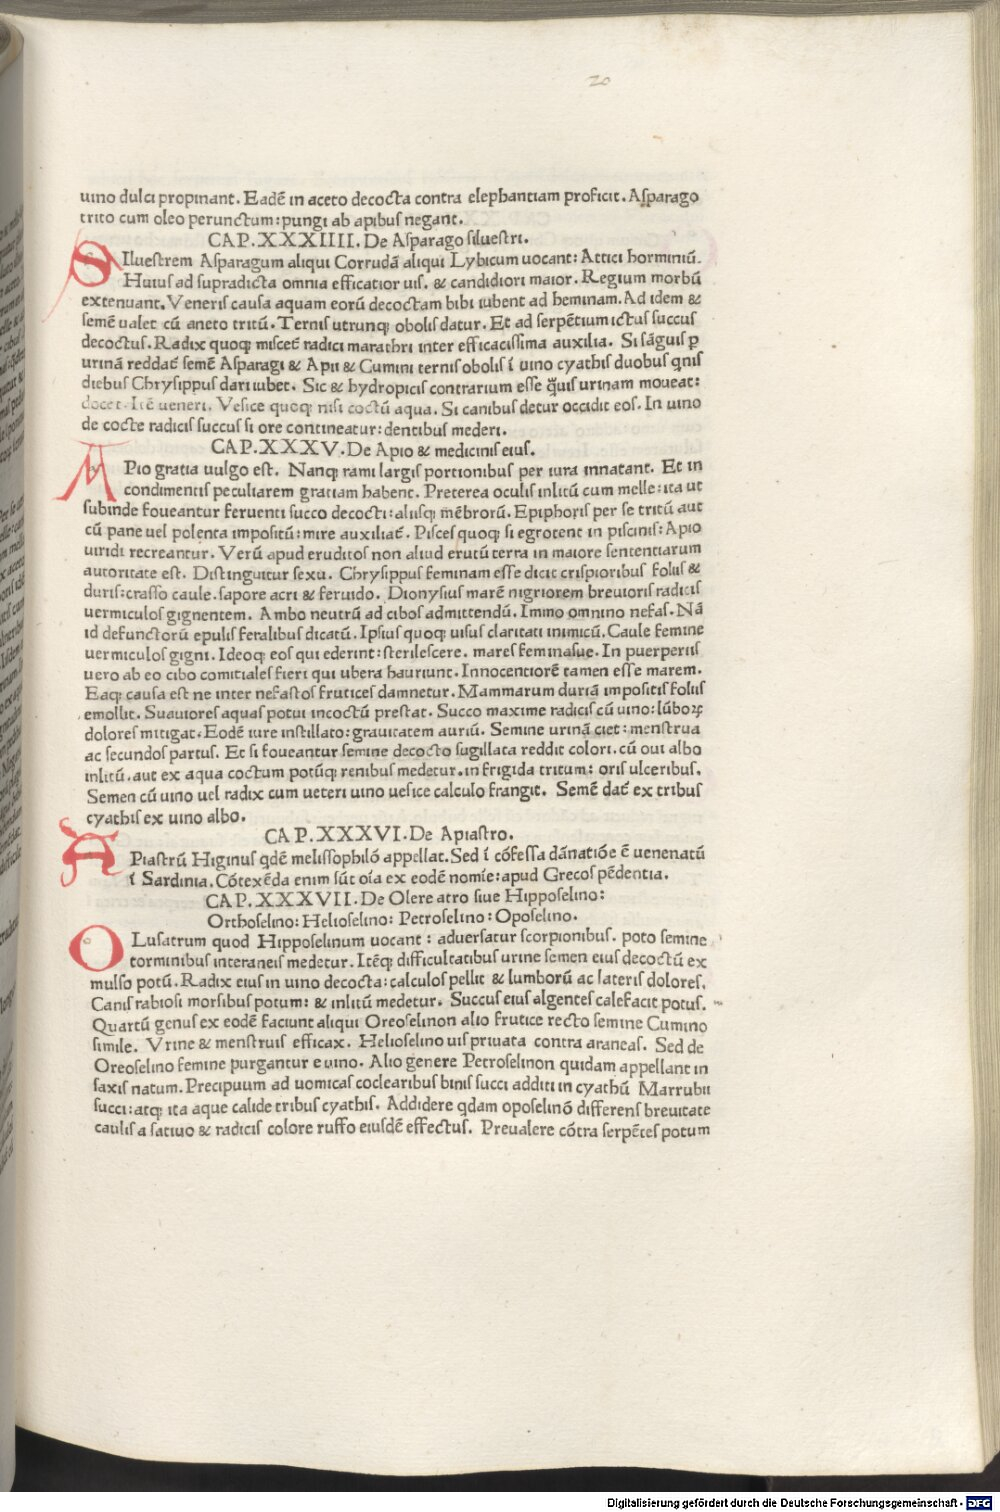 20
uino dulci propinant. Eadē in aceto decocta contra elephantiam proficit. Asparago
trito cum oleo perunctum: pungi ab apibus negant.
CAP.XXXIIII. De Asparago siluestri.
SIluestrem Asparagum aliqui Corrudā aliqui Lybicum uocant: Attici horminiū.
Huius ad supradicta omnia efficatior uis. & candidiori maior. Regium morbū
extenuant. Veneris causa aquam eorū decoctam bibi iubent ad heminam. Ad idem &
semē ualet cū aneto tritū. Ternis utrunq; obolis datur. Et ad serpētium ictus succus
decoctus. Radix quoq; miscet᷑ radici marathri inter efficacissima auxilia. Si sāguis ꝑ
urinā reddat᷑ semē Asparagi & Apii & Cumini ternis obolis ī uino cyathis duobus qnis
diebus Chrysippus dari iubet. Sic & hydropicis contrarium esse q̄uis urinam moueat:
docet. Itē ueneri. Vesice quoq; nisi coctū aqua. Si canibus detur occidit eos. In uino
de cocte radicis succus si ore contineatur: dentibus mederi.
CAP.XXXV. De Apio & medicinis eius.
APio gratia uulgo est. Nanq; rami largis portionibus per iura innatant. Et in
condimentis peculiarem gratiam habent. Preterea oculis inlitū cum melle: ita ut
subinde foueantur feruenti succo decocti: aliisq; mēbrorū. Epiphoris per se tritū aut
cū pane uel polenta impositū: mire auxiliat᷑. Pisces quoq; si egrotent in piscinis: Apio
uiridi recreantur. Verū apud eruditos non aliud erutū terra in maiore sententiarum
autoritate est. Distinguitur sexu. Chrysippus feminam esse dicit crispioribus foliis &
duris: crasso caule. sapore acri & feruido. Dionysius marē nigriorem breuioris radicis
uermiculos gignentem. Ambo neutrū ad cibos admittendū. Immo omnino nefas. Nā
id defunctorū epulis feralibus dicatū. Ipsius quoq; uisus claritati inimicū. Caule femine
uermiculos gigni. Ideoq; eos qui ederint: sterilescere. mares feminasue. In puerperiis
uero ab eo cibo comitiales fieri qui ubera hauriunt. Innocentiorē tamen esse marem.
Eaq; causa est ne inter nefastos frutices damnetur. Mammarum duriā impositis foliis
emollit. Suauiores aquas potui incoctū prestat. Succo maxime radicis cū uino: lūboꝝ
dolores mitigat. Eodē iure instillato: grauitatem auriū. Semine urinā ciet: menstrua
ac secundos partus. Et si foueantur semine decocto sugillata reddit colori. cū oui albo
inlitū. aut ex aqua coctum potūq; renibus medetur. in frigida tritum: oris ulceribus.
Semen cū uino uel radix cum ueteri uino uesice calculo frangit. Semē dat᷑ ex tribus
cyathis ex uino albo.
CAP.XXXVI. De Apiastro.
APiastrū Higinus qdē melissophilō appellat. Sed ī cōfessa dānatiōe ē uenenatū
ī Sardinia. Cōtexēda enim sūt oīa ex eodē nomīe: apud Grecos pēdentia.
CAP.XXXVII. De Olere atro siue Hipposelino:
Orthoselino: Helioselino: Petroselino: Oposelino.
OLusatrum quod Hipposelinum uocant: aduersatur scorpionibus. poto semine
torminibus interaneis medetur. Itēq; difficultatibus urine semen eius decoctū ex
mulso potū. Radix eius in uino decocta: calculos pellit & lumborū ac lateris dolores.
Canis rabiosi morsibus potum: & inlitū medetur. Succus eius algentes calefacit potus.
Quartū genus ex eodē faciunt aliqui Oreoselinon alio frutice recto semine Cumino
simile. Vrine & menstruis efficax. Helioselino uis priuata contra araneas. Sed de
Oreoselino femine purgantur e uino. Alio genere Petroselinon quidam appellant in
saxis natum. Precipuum ad uomicas coclearibus binis succi additi in cyathū Marrubii
succi: atq; ita aque calide tribus cyathis. Addidere qdam oposelinō differens breuitate
caulis a satiuo & radicis colore ruffo eiusdē effectus. Preualere cōtra serpētes potum
Digitalisierung gefördert durch die Deutsche Forschungsgemeinschaft - DFG